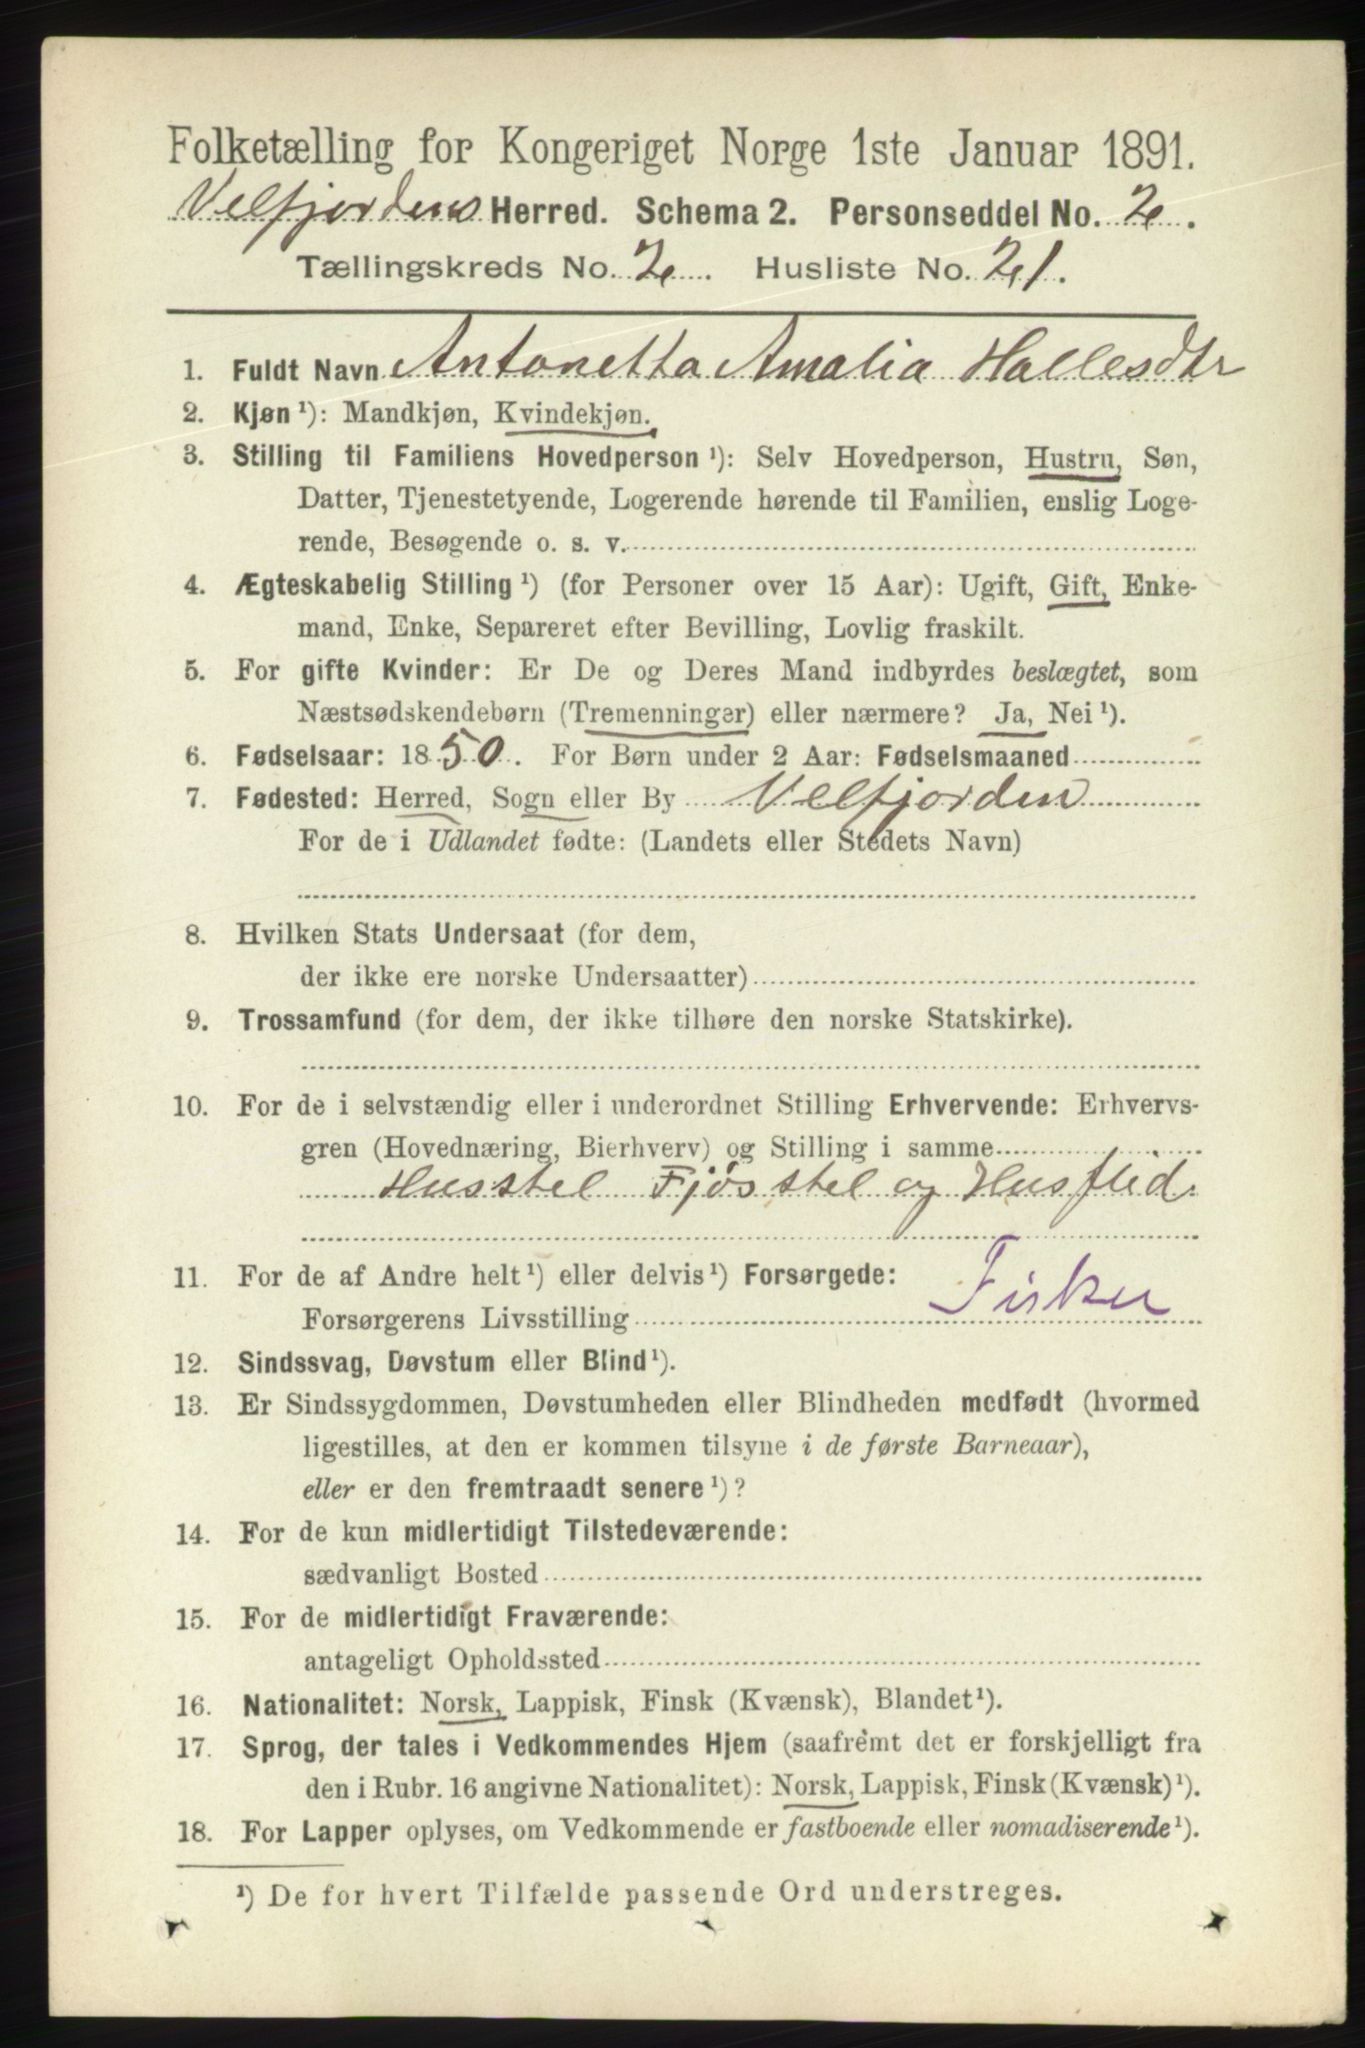 Folketælling for Kongeriget Norge 1ste Januar 1891.
Velfjordens Herred. Schema 2. Personseddel No. 2.
Tællingskreds No. 2. Husliste No. 21.
1. Fuldt Navn Antonetta Amalia Hallesdtr
2. Kjøn ¹): Mandkjøn, Kvindekjøn.
3. Stilling til Familiens Hovedperson ¹): Selv Hovedperson, Hustru, Søn,
Datter, Tjenestetyende, Logerende hørende til Familien, enslig Loge-
rende, Besøgende o. s. v.
4. Ægteskabelig Stilling ¹) (for Personer over 15 Aar): Ugift, Gift, Enke-
mand, Enke, Separeret efter Bevilling, Lovlig fraskilt.
5. For gifte Kvinder: Er De og Deres Mand indbyrdes beslægtet, som
Næstsødskendebørn (Tremenninger) eller nærmere? Ja, Nei ¹).
6. Fødselsaar: 1850. For Børn under 2 Aar: Fødselsmaaned
7. Fødested: Herred, Sogn eller By Velfjorden
For de i Udlandet fødte: (Landets eller Stedets Navn)
8. Hvilken Stats Undersaat (for dem,
der ikke ere norske Undersaatter)
9. Trossamfund (for dem, der ikke tilhøre den norske Statskirke).
10. For de i selvstændig eller i underordnet Stilling Erhvervende: Erhvervs-
gren (Hovednæring, Bierhverv) og Stilling i samme
Husstel Fjøsstel og Husflid.
11. For de af Andre helt ¹) eller delvis ¹) Forsørgede:
Forsørgerens Livsstilling Fisker
12. Sindssvag, Døvstum eller Blind ¹).
13. Er Sindssygdommen, Døvstumheden eller Blindheden medfødt (hvormed
ligestilles, at den er kommen tilsyne i de første Barneaar),
eller er den fremtraadt senere ¹)?
14. For de kun midlertidigt Tilstedeværende:
sædvanligt Bosted
15. For de midlertidigt Fraværende:
antageligt Opholdssted
16. Nationalitet: Norsk, Lappisk, Finsk (Kvænsk), Blandet ¹).
17. Sprog, der tales i Vedkommendes Hjem (saafremt det er forskjelligt fra
den i Rubr. 16 angivne Nationalitet): Norsk, Lappisk, Finsk (Kvænsk) ¹).
18. For Lapper oplyses, om Vedkommende er fastboende eller nomadiserende ¹).
¹) De for hvert Tilfælde passende Ord understreges.